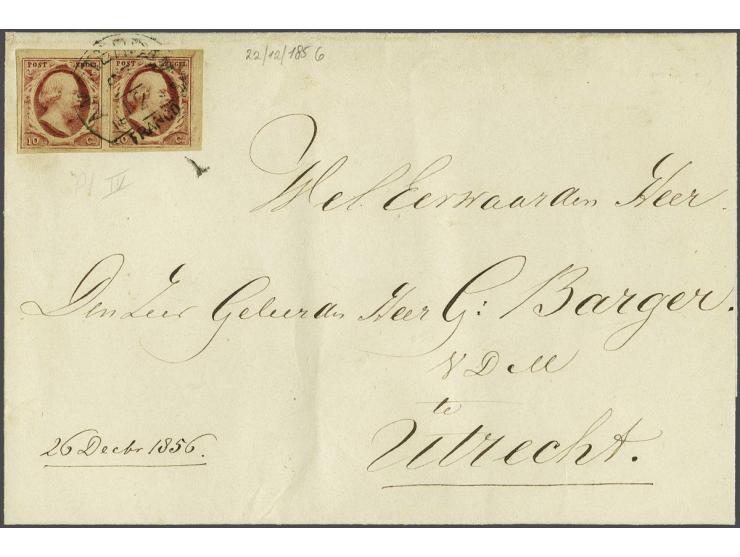 POST ZEGEL POST ZEGEL
10 C. 10 C.
FRANCO
22/12/1856
Pl IV
Wel Eerwaarden Heer.
Den Zeer Geleerden Heer G: Barger.
V D M
te
Utrecht.
26 Decbr 1856.